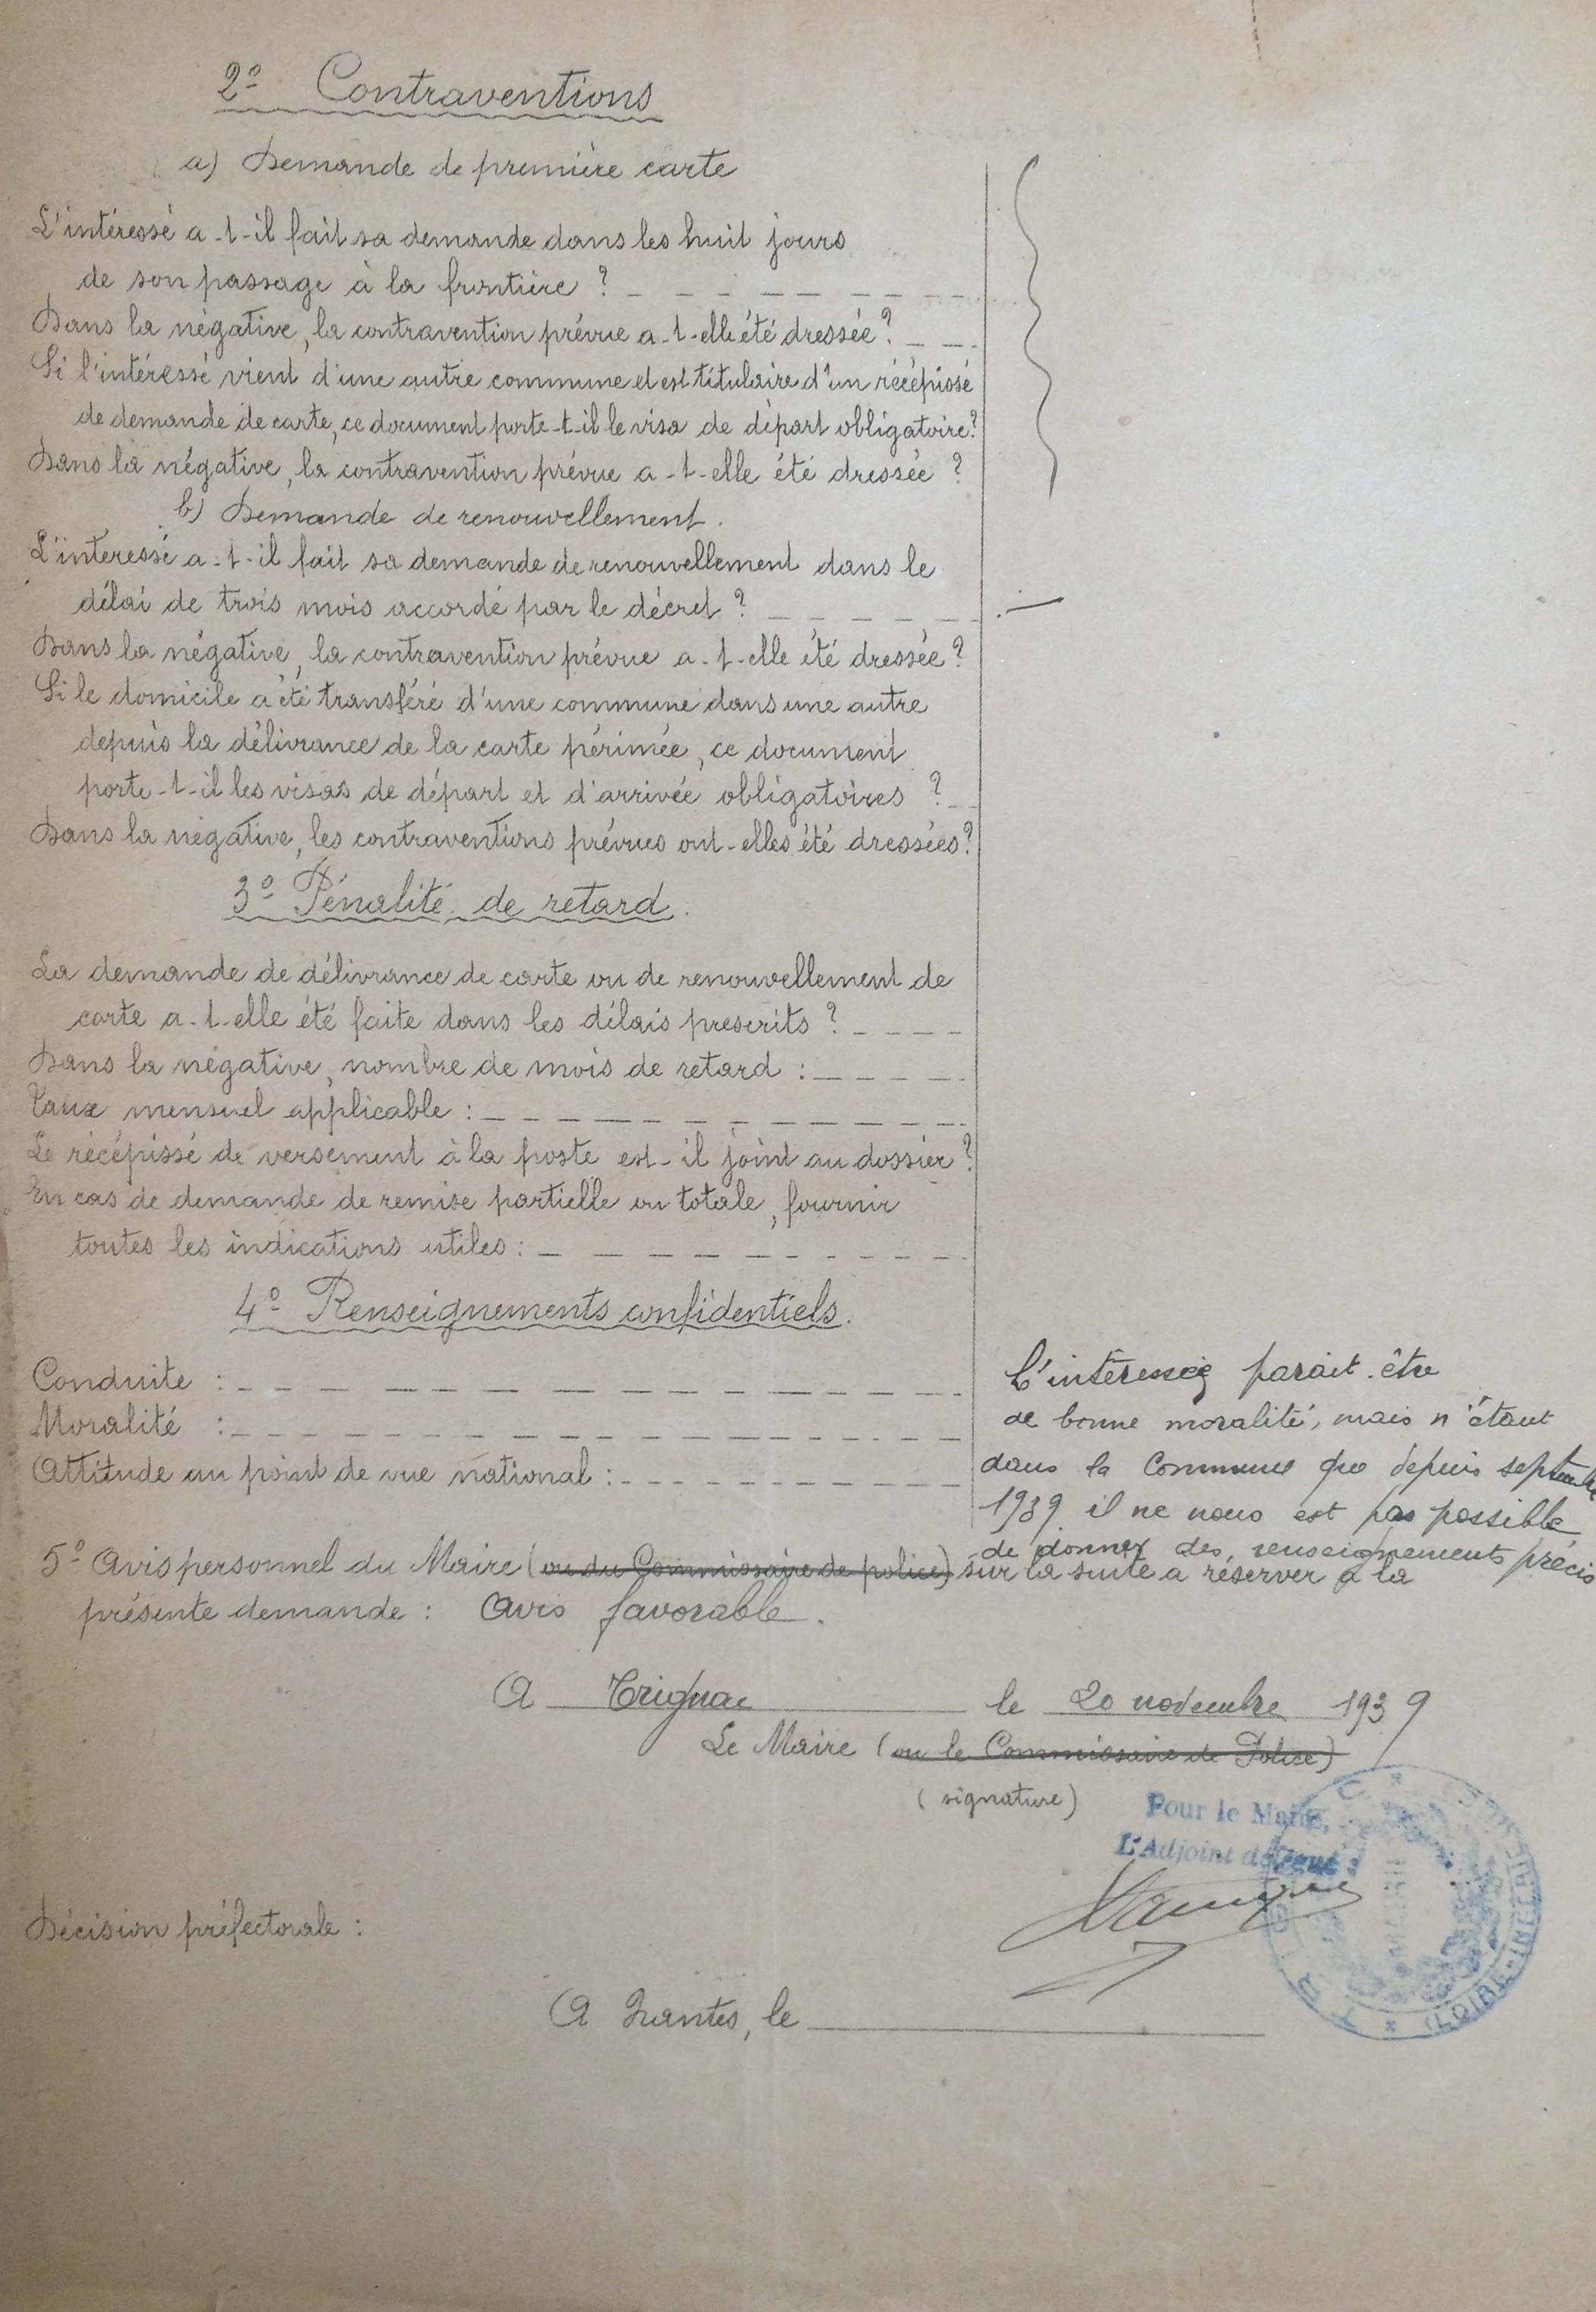 2º Contraventions
a) Demande de première carte
L'intéressé a-t-il fait sa demande dans les huit jours
de son passage à la frontière ?
Dans la négative, la contravention prévue a-t-elle été dressée ?
Si l'intéressé vient d'une autre commune et est titulaire d'un récépissé
de demande de carte, ce document porte-t-il le visa de départ obligatoire ?
Dans la négative, la contravention prévue a-t-elle été dressée ?
b) Demande de renouvellement.
L'intéressé a-t-il fait sa demande de renouvellement dans le
délai de trois mois accordé par le décret ?
Dans la négative, la contravention prévue a-t-elle été dressée ?
Si le domicile a été transféré d'une commune dans une autre
depuis la délivrance de la carte périmée, ce document
porte-t-il les visas de départ et d'arrivée obligatoires ?
Dans la négative, les contraventions prévues ont-elles été dressées ?
3º Pénalité de retard.
La demande de délivrance de carte ou de renouvellement de
carte a-t-elle été faite dans les délais prescrits ?
Dans la négative, nombre de mois de retard :
Taux mensuel applicable :
Le récépissé de versement à la poste est-il joint au dossier ?
En cas de demande de remise partielle ou totale, fournir
toutes les indications utiles :
4º Renseignements confidentiels.
Conduite :
Moralité :
Attitude au point de vue national :
L'intéressé parait être
de bonne moralité, mais n'étant
dans la Commune que depuis septembre
1939 il ne nous est pas possible
de donner des renseignements précis
5º Avis personnel du Maire (ou du Commissaire de police) sur la suite à réserver à la
présente demande : Avis favorable.
A Trignac le 20 novembre 1939
Le Maire (ou le Commissaire de Police)
(signature)
Pour le Maire,
L'Adjoint délégué :
MAIRIE
(LOIRE-INFRE)
Décision préfectorale :
A Nantes, le